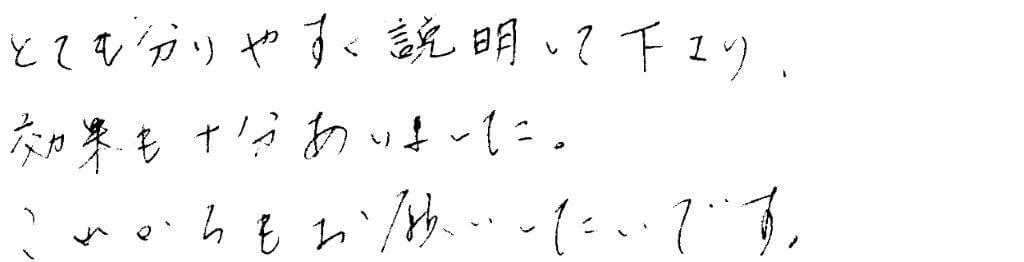 とても分りやすく説明して下さり、
効果も十分ありました。
これからもお願いしたいです。